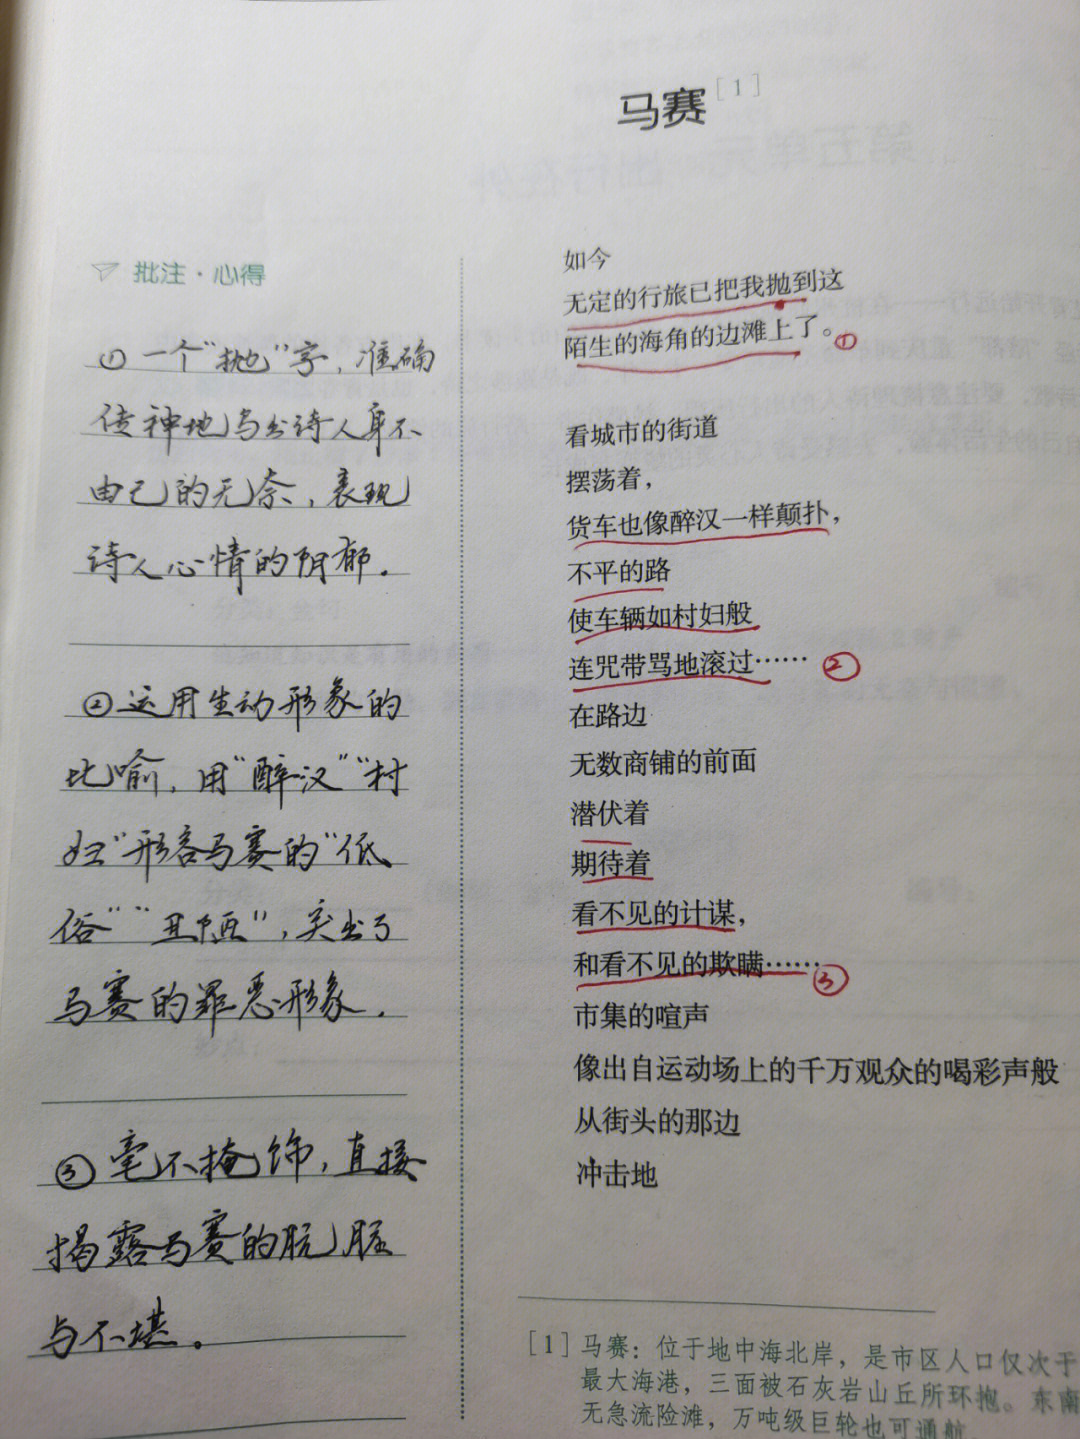 马赛[1]
批注·心得
①一个“抛”字，准确
传神地写出诗人身不
由己的无奈，表现
诗人心情的阴郁。
②运用生动形象的
比喻，用“醉汉”“村
妇”形容马赛的“低
俗”“丑陋”，突出了
马赛的罪恶形象。
③毫不掩饰，直接
揭露马赛的肮脏
与不堪。
如今
无定的行旅已把我抛到这
陌生的海角的边滩上了。①
看城市的街道
摆荡着，
货车也像醉汉一样颠扑，
不平的路
使车辆如村妇般
连咒带骂地滚过……②
在路边
无数商铺的前面
潜伏着
期待着
看不见的计谋，
和看不见的欺瞒……③
市集的喧声
像出自运动场上的千万观众的喝彩声般
从街头的那边
冲击地
[1]马赛：位于地中海北岸，是市区人口仅次于
最大海港，三面被石灰岩山丘所环抱。东南
无急流险滩，万吨级巨轮也可通航